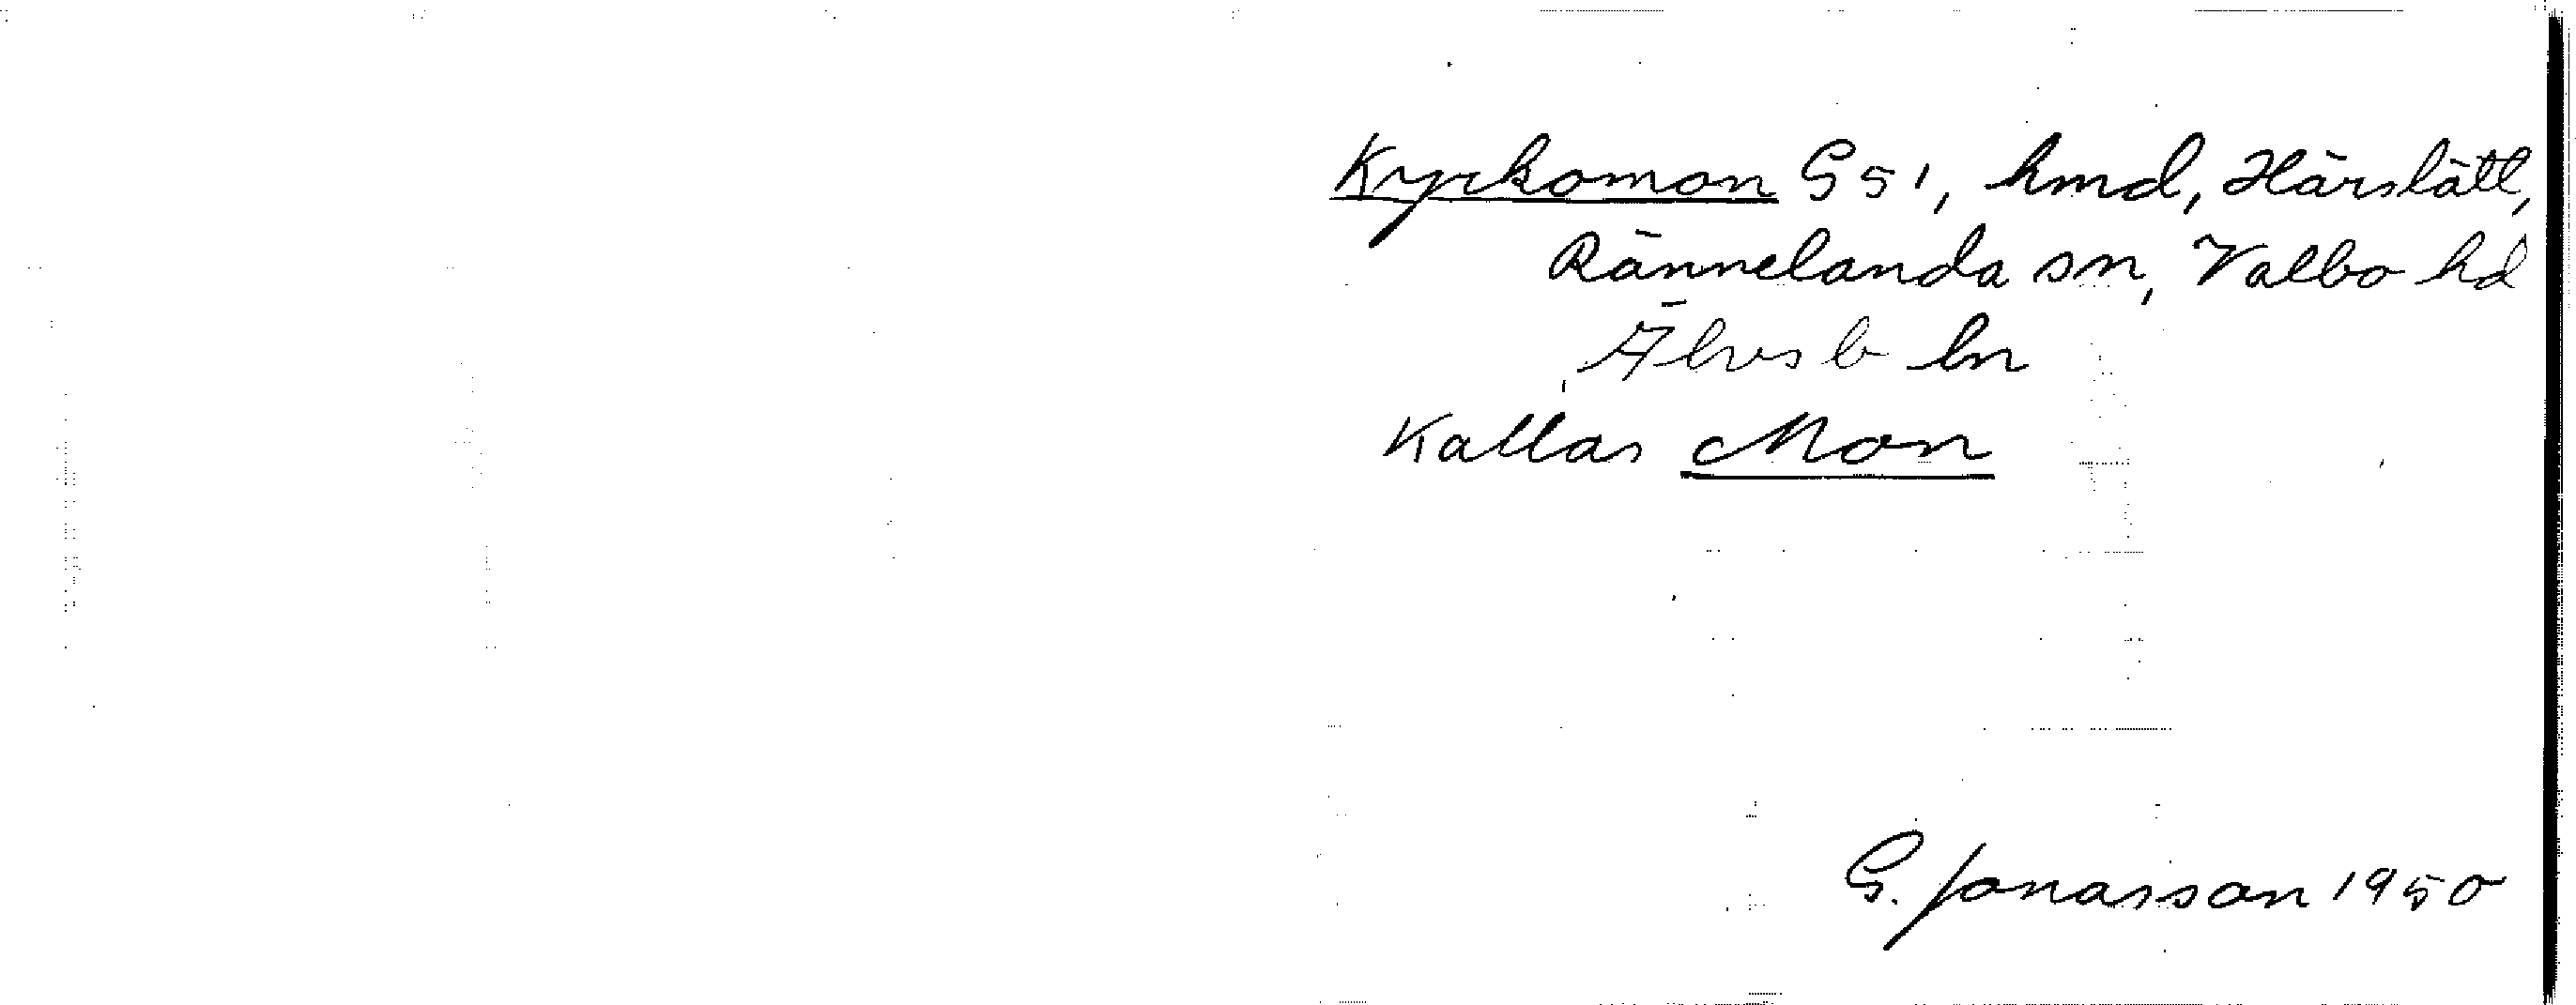 Kyrkomon G51, hmd, Härslätt,
Rännelanda sn, Valbo hd
Älvsb ln
Kallas Mon
G. Jonasson 1950